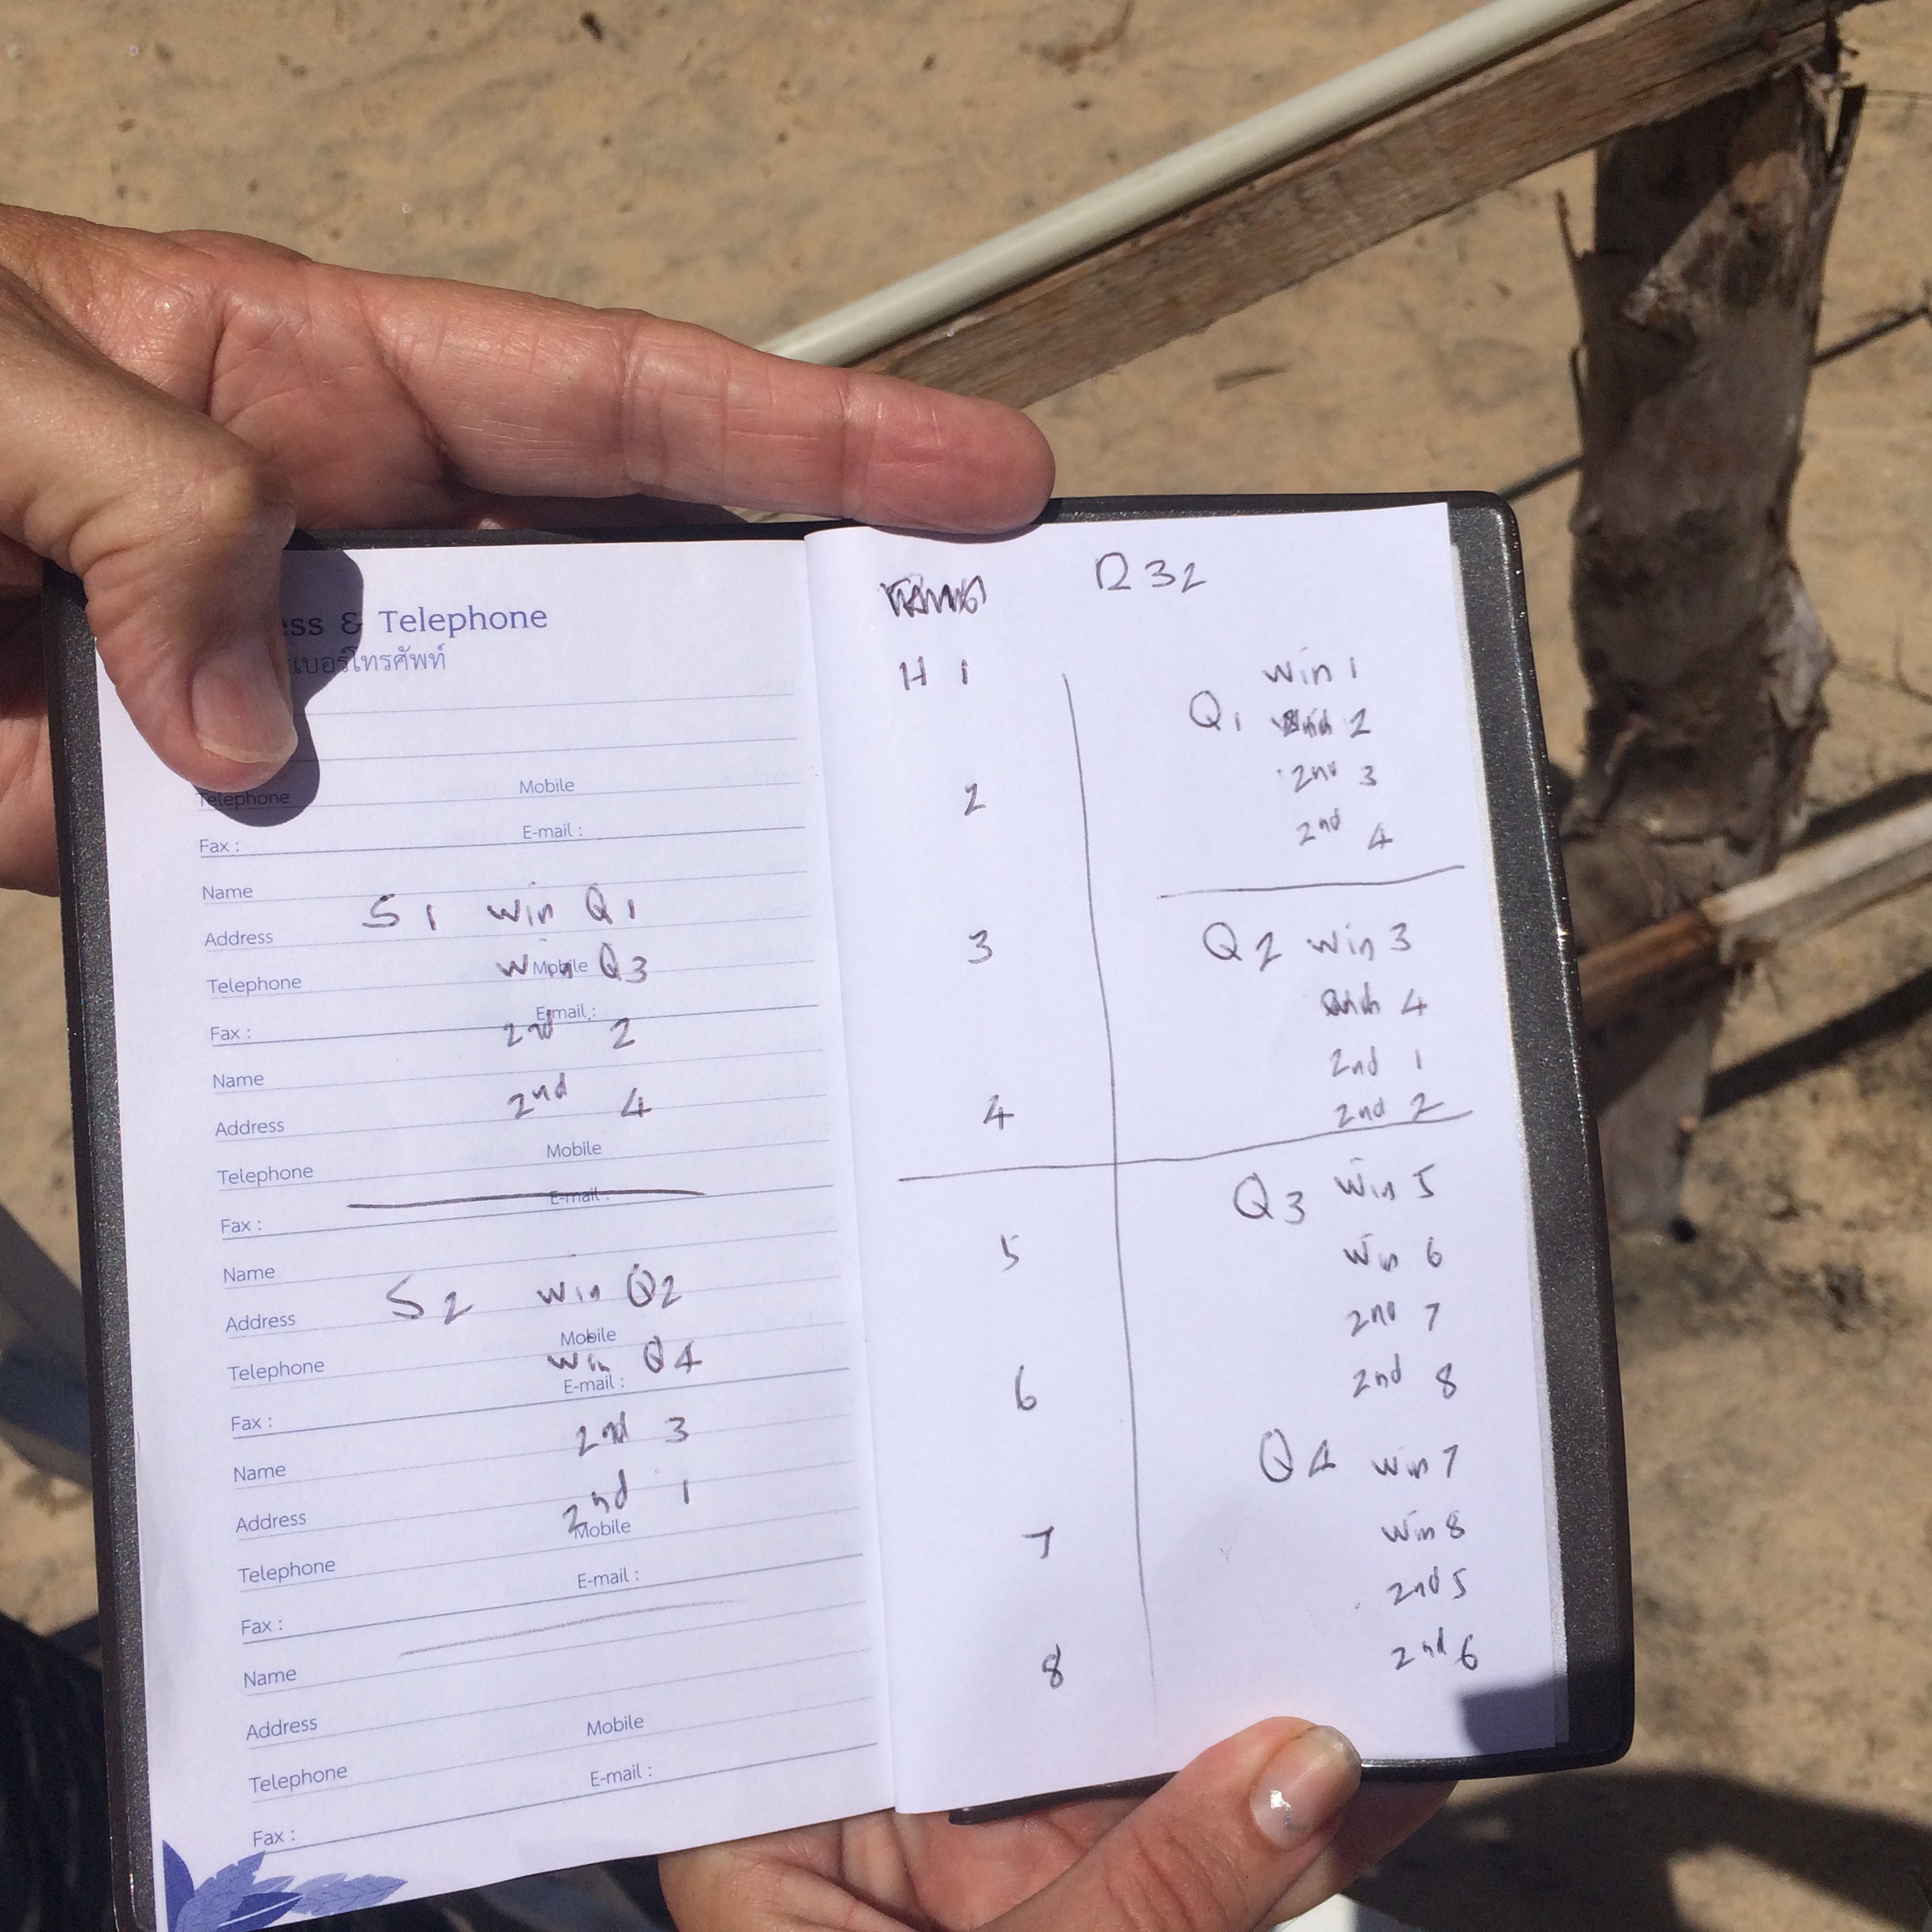 & Telephone
เบอร์โทรศัพท์
Telephone Mobile
Fax : E-mail :
Name
Address S 1 win Q1
Telephone Mobile win Q3
Fax : E-mail : 2nd 2
Name
Address 2nd 4
Telephone Mobile
Fax : E-mail :
Name
Address S2 win Q2
Telephone Mobile win Q4
Fax : E-mail :
Name 2nd 3
Address 2nd 1
Telephone Mobile
Fax : E-mail :
Name
Address
Telephone Mobile
Fax : E-mail :
R 32
H 1
2
3
4
5
6
7
8
win 1
Q1 2
2nd 3
2nd 4
Q2 win 3
4
2nd 1
2nd 2
Q3 win 5
win 6
2nd 7
2nd 8
Q4 win 7
win 8
2nd 5
2nd 6